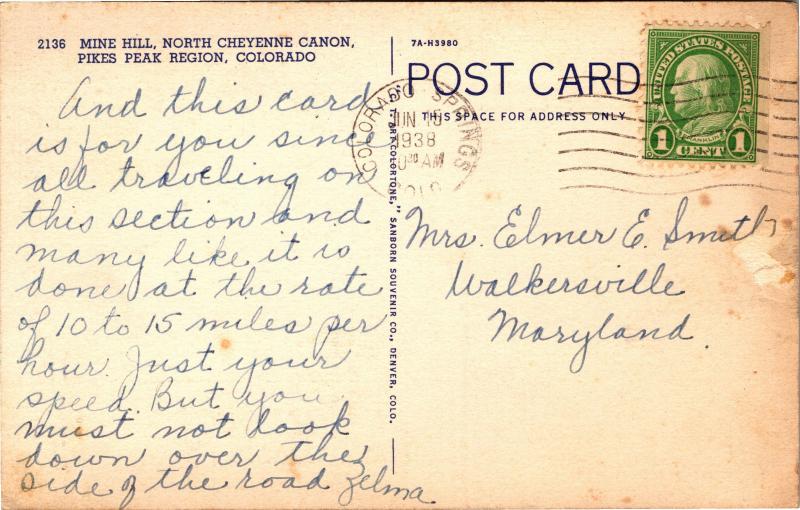 2136 MINE HILL, NORTH CHEYENNE CANON,
PIKES PEAK REGION, COLORADO
And this card
is for you since
all traveling on
this section and
many like it is
done at the rate
of 10 to 15 miles per
hour. Just your
speed. But you
must not look
down over the
side of the road Zelma
"ART COLORTONE," SANBORN SOUVENIR CO., DENVER, COLO.
7A-H3980
POST CARD
THIS SPACE FOR ADDRESS ONLY
COLORADO SPRINGS
JUN
1938
AM
COLO
UNITED STATES POSTAGE
FRANKLIN
1 CENT 1
Mrs. Elmer E. Smith
Walkersville
Maryland.